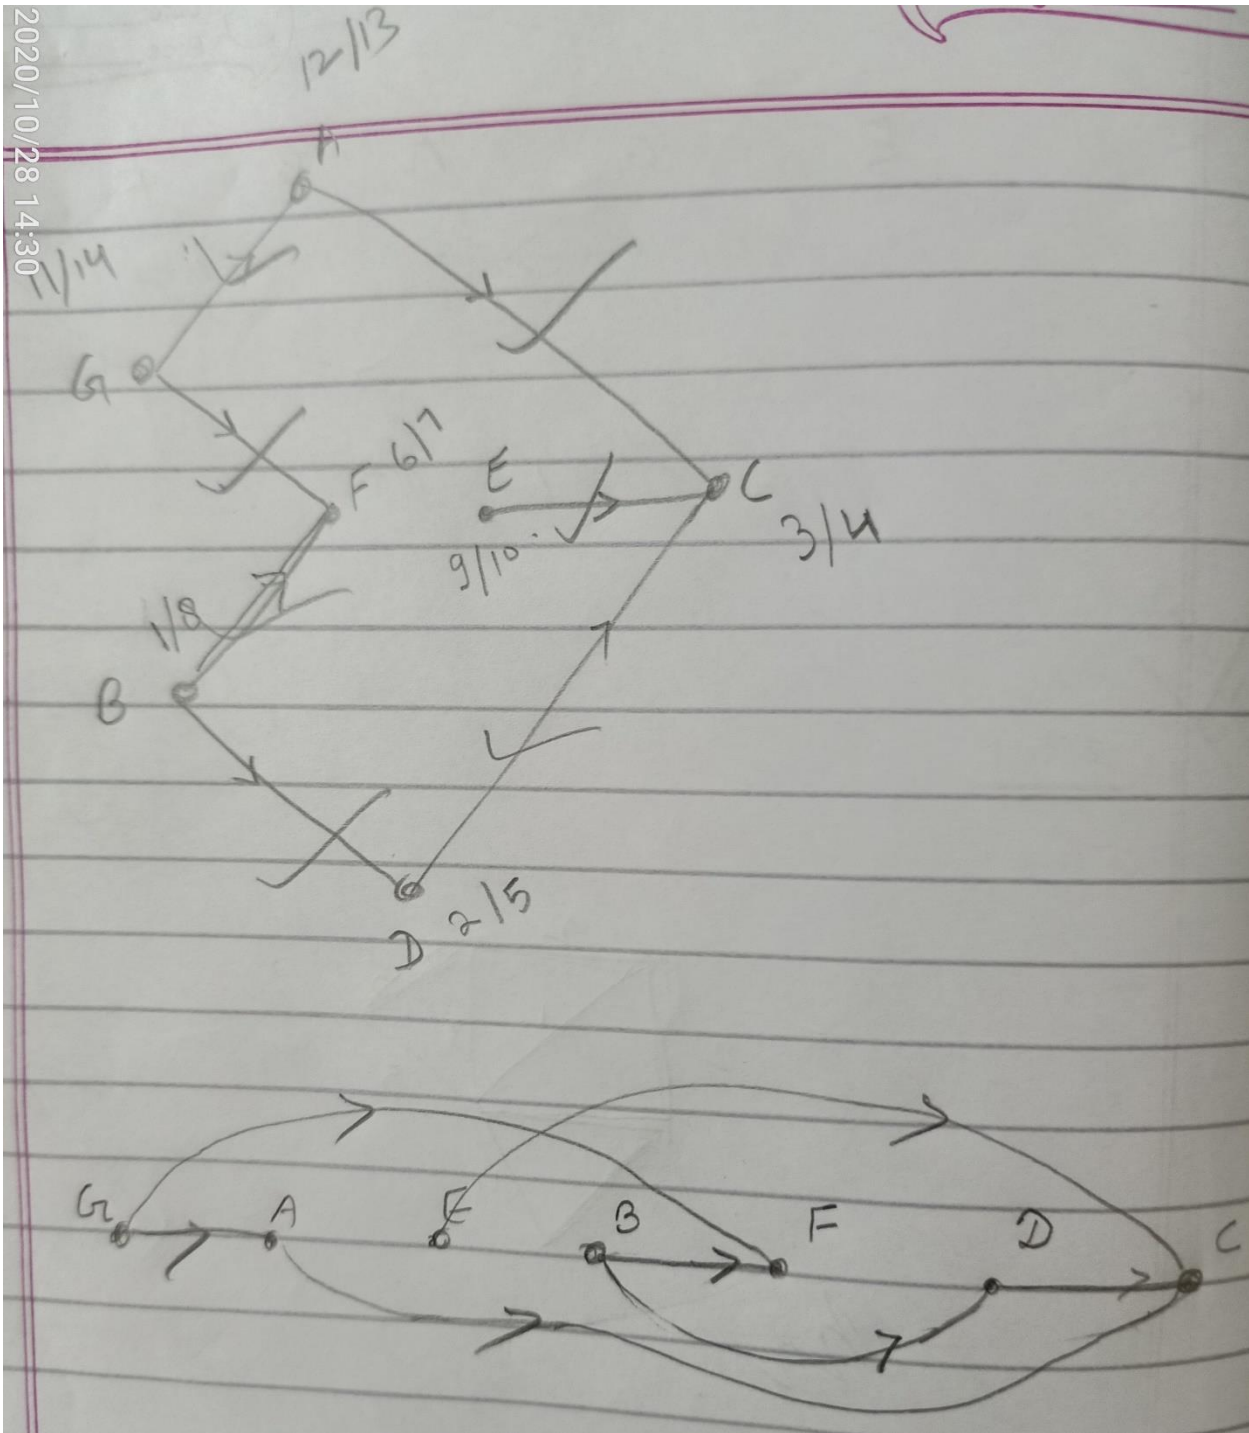 2020/10/28 14:30
12/13
A
11/14
G
F 6/7
E
C
9/10
3/4
1/8
B
2/5
D
G A E B F D C